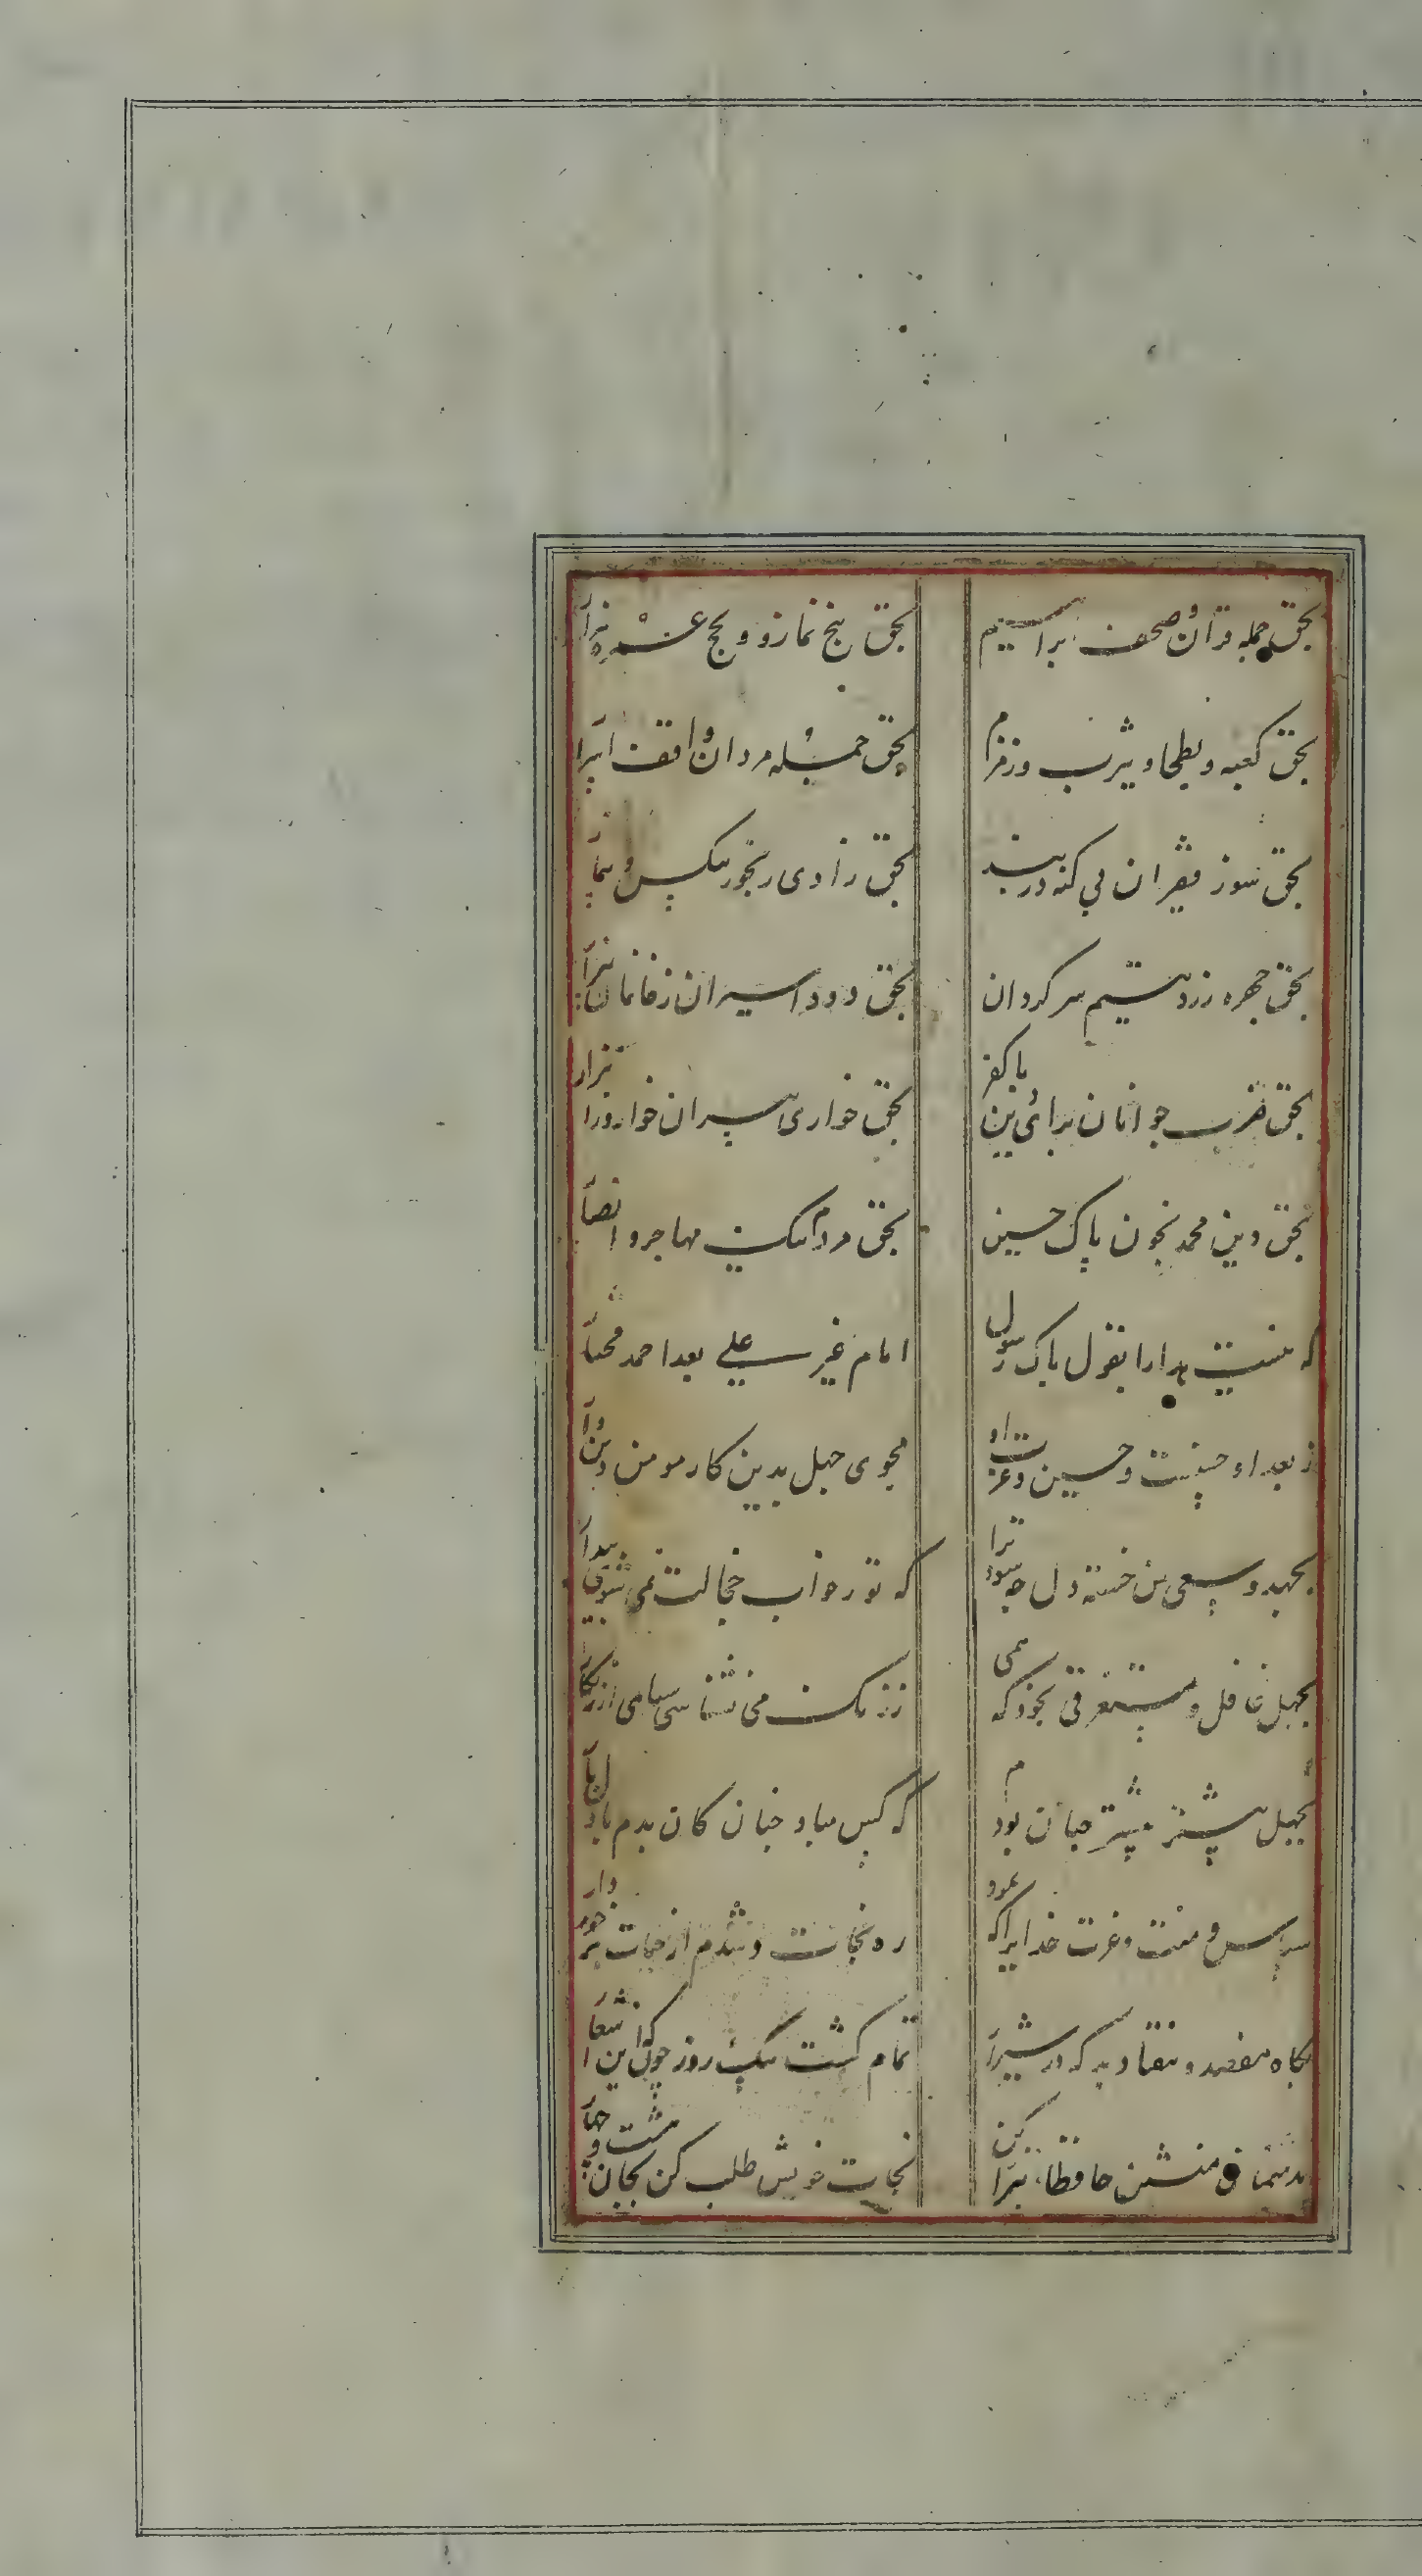 بحق جمله قرآن و صحف ابراهیم
بحق پنج نماز و بحج
بحق کعبه و بطحا و یثرب و زمزم
بحق جمله مردان
بحق سوز فقیران بی کنه در بند
بحق زاری رنجور بیکس و بیمار
بحق چهره زرد یتیم سرکردان
بحق درد اسیران ز خانمان
بحق ضرب جوانان برای دین با کفر
بحق خواری پیران خوار و زار
بحق دین محمد بخون پاک حسین
بحق مردم مهاجر و انصار
که نیست بقول پاک رسول
امام غیر علی بعد احمد مختار
ز بعد او حسنست و حسین و عترت او
مجوی جهل بدین کار مومن دیندار
بجهد و سعی من خسته دل چه سود ترا
که تو ز خواب خجالت نمی شوی بیدار
بجهل غافل و مستغرقی بخود که همی
ز زنک می نشناسی سیاهی از زنکار
بجهل بیشتر
که کس مباد چنان کان بدم باول بار
سپاس و منت و عزت خدایرا که نمود
ره نجات و شدم از حیات برخوردار
بکاه هفصد و هفتاد بد که در شیراز
تمام کشت بیک روز چون این اشعار
حافظا تبرا کن
نجات خویش طلب کن بجان هشت و چهار